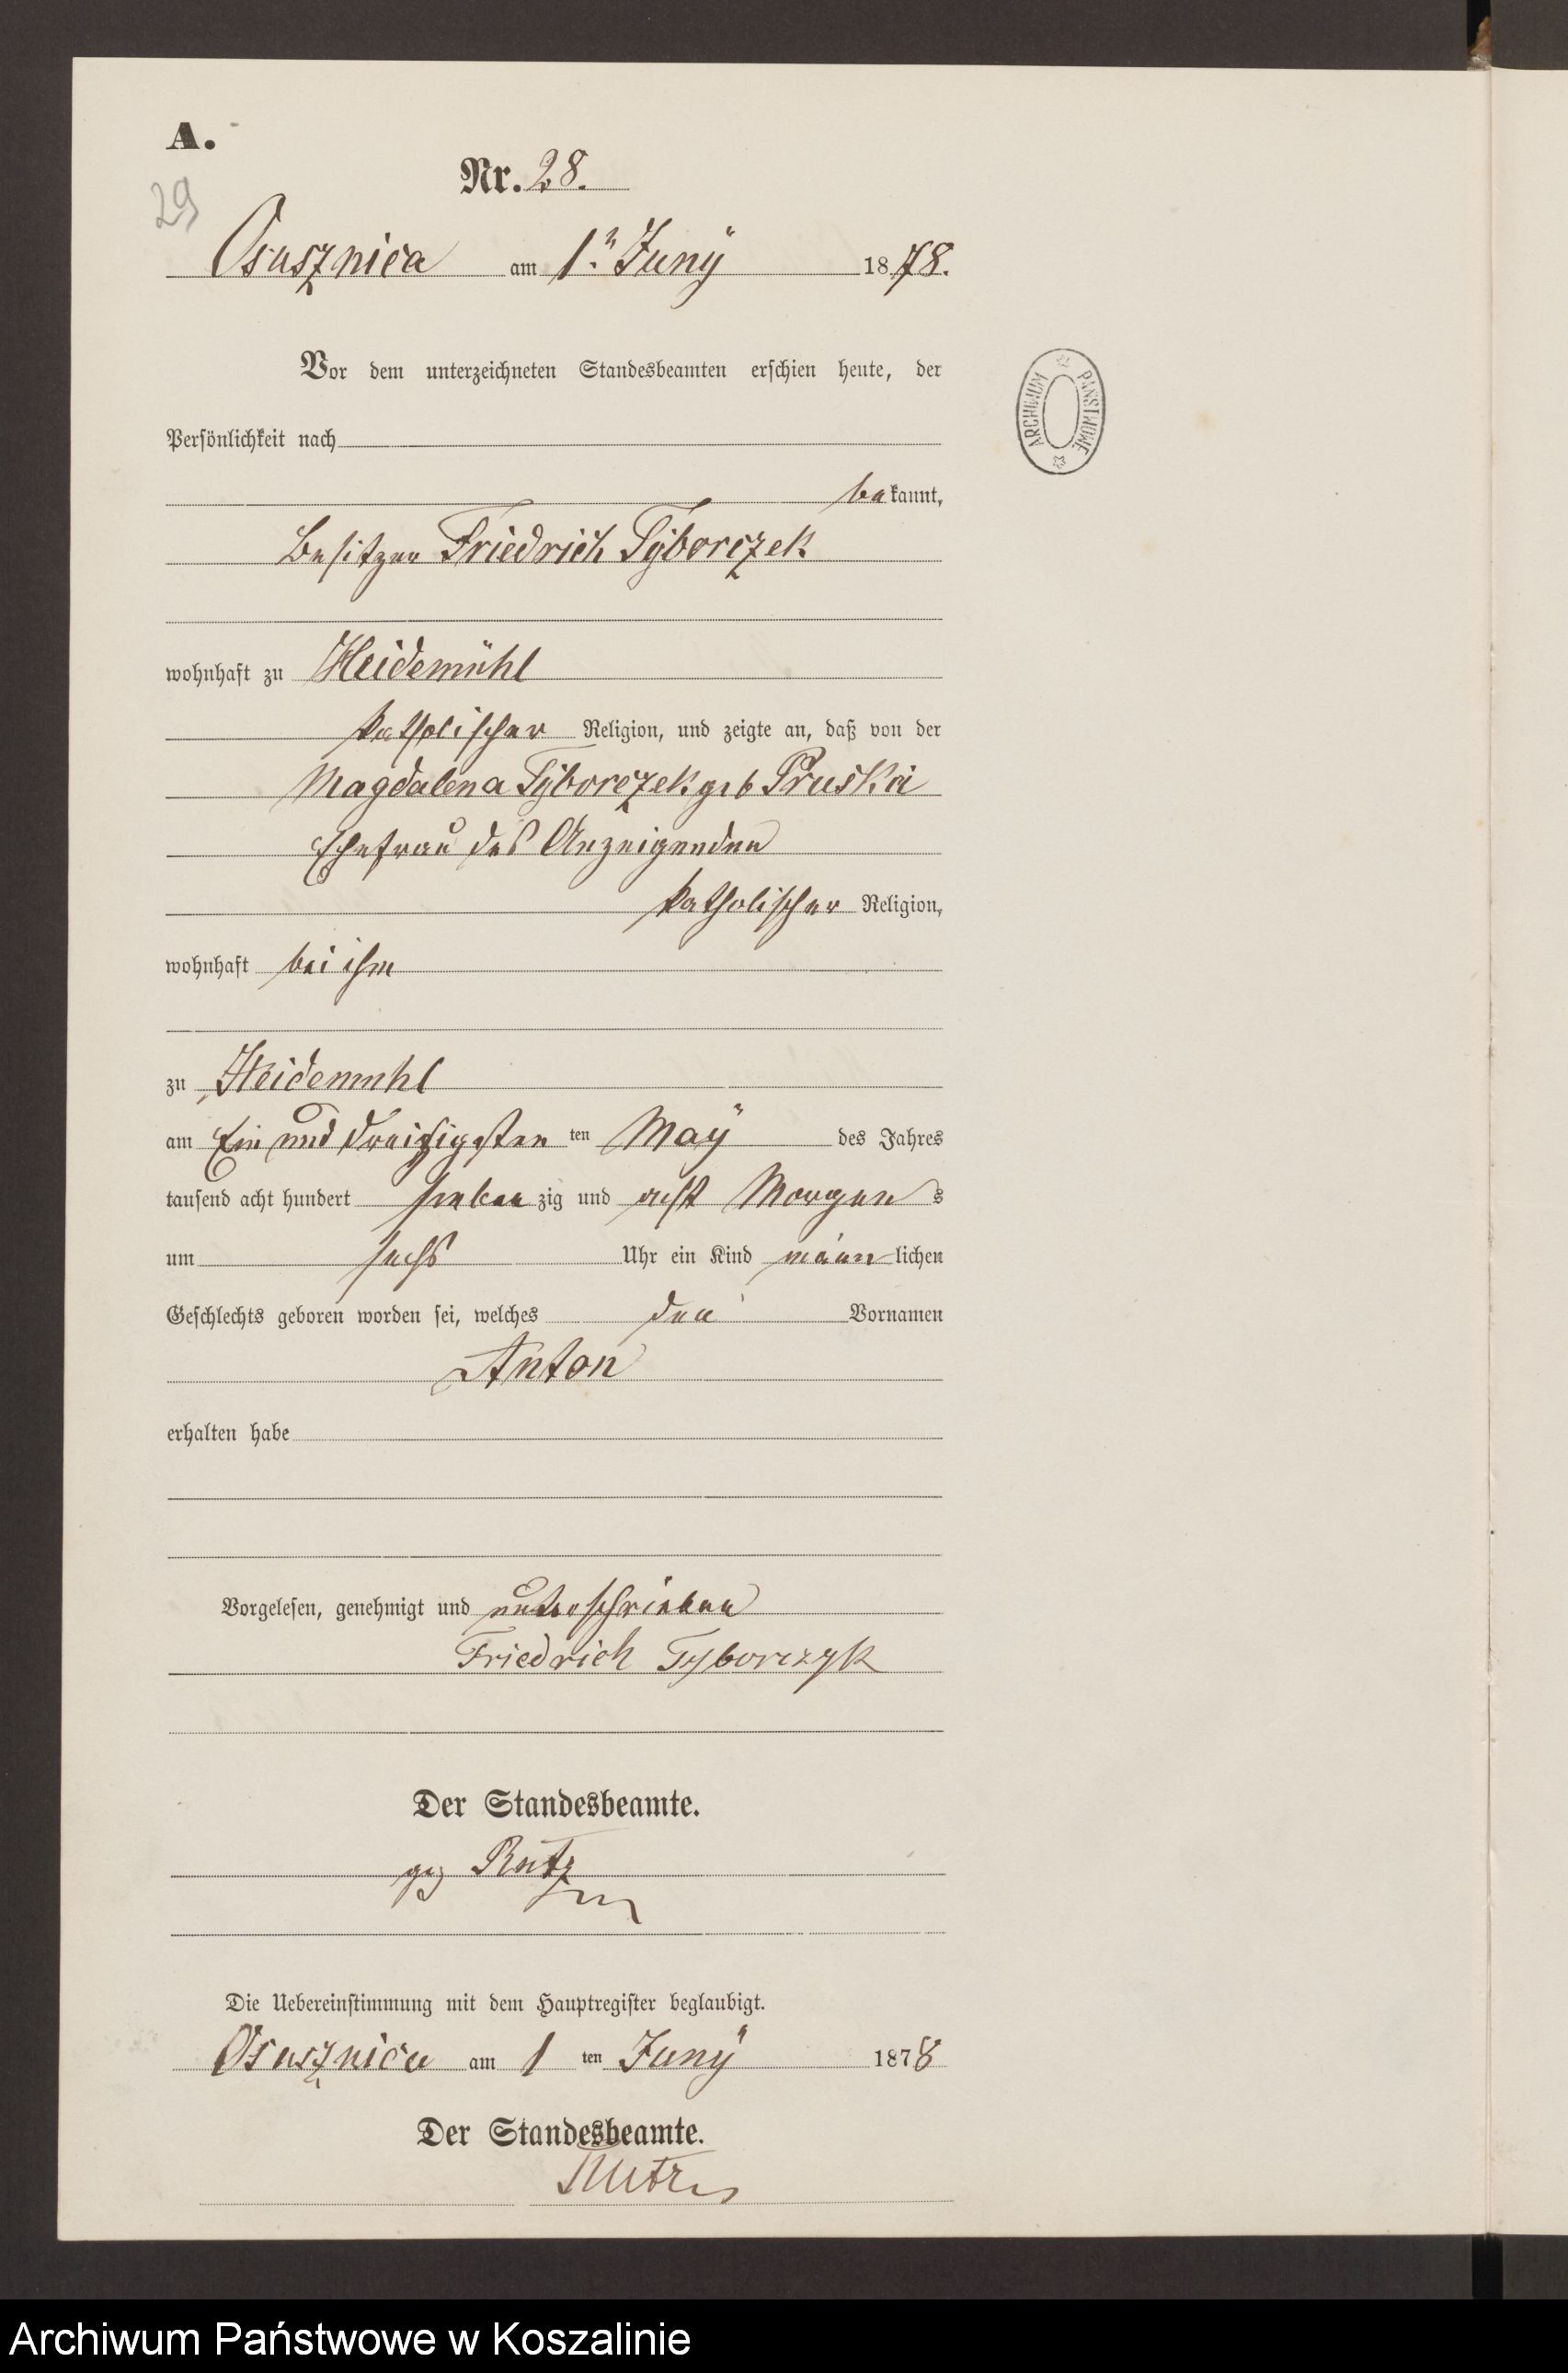 A.
Nr. 28.
29
Osusznica am 1ⁿ Juny 1878.
ARCHIWUM PAŃSTWOWE
Vor dem unterzeichneten Standesbeamten erschien heute, der
Persönlichkeit nach
bekannt,
Besitzer Friedrich Tyborczek
wohnhaft zu Heidemühl
katholischer Religion, und zeigte an, daß von der
Magdalena Tyborczek geb Pruska
Ehefrau des Anzeigenden
katholischer Religion,
wohnhaft bei ihm
zu Heidemuhl
am Ein und dreißigsten ten May des Jahres
tausend acht hundert sieben zig und acht Morgens
um sechs Uhr ein Kind männlichen
Geschlechts geboren worden sei, welches den Vornamen
Anton
erhalten habe
Vorgelesen, genehmigt und unterschrieben
Friedrich Tyborczyk
Der Standesbeamte.
gez Rutz
Die Uebereinstimmung mit dem Hauptregister beglaubigt.
Osusznica am 1 ten Juny 1878
Der Standesbeamte.
Rutz
Archiwum Państwowe w Koszalinie